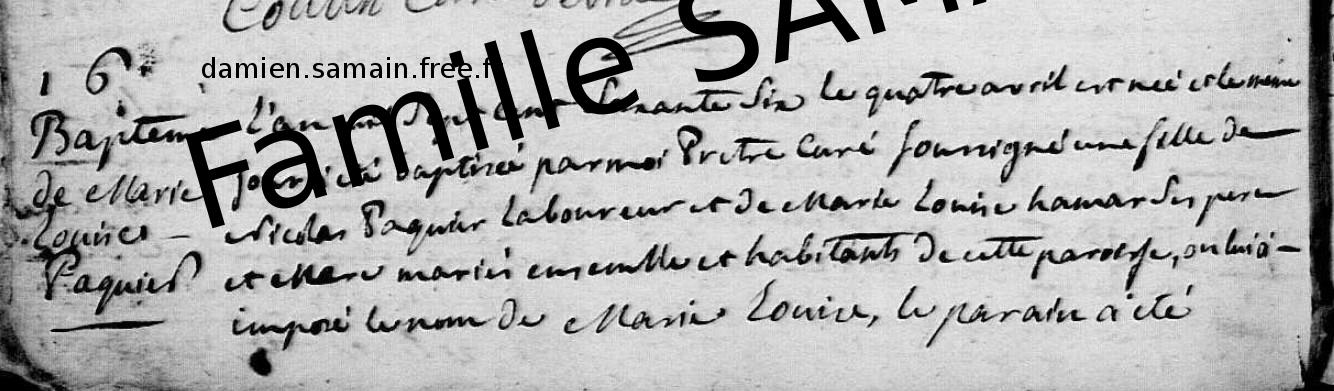 damien.samain.free.fr
Famille SAMA
16e
Baptême
de Marie
Louise
Paquier
L'an mil Sept cent Soixante Six le quatre avril est neé et le même
jour a été baptiseé par moi Pretre Curé soussigné une fille de
Nicolas Paquier Laboureur et de Marie Louise hamar Ses pere
et Mere mariés ensemble et habitants de cette paroisse, on lui a
imposé le nom de Marie Louise, le parain a été